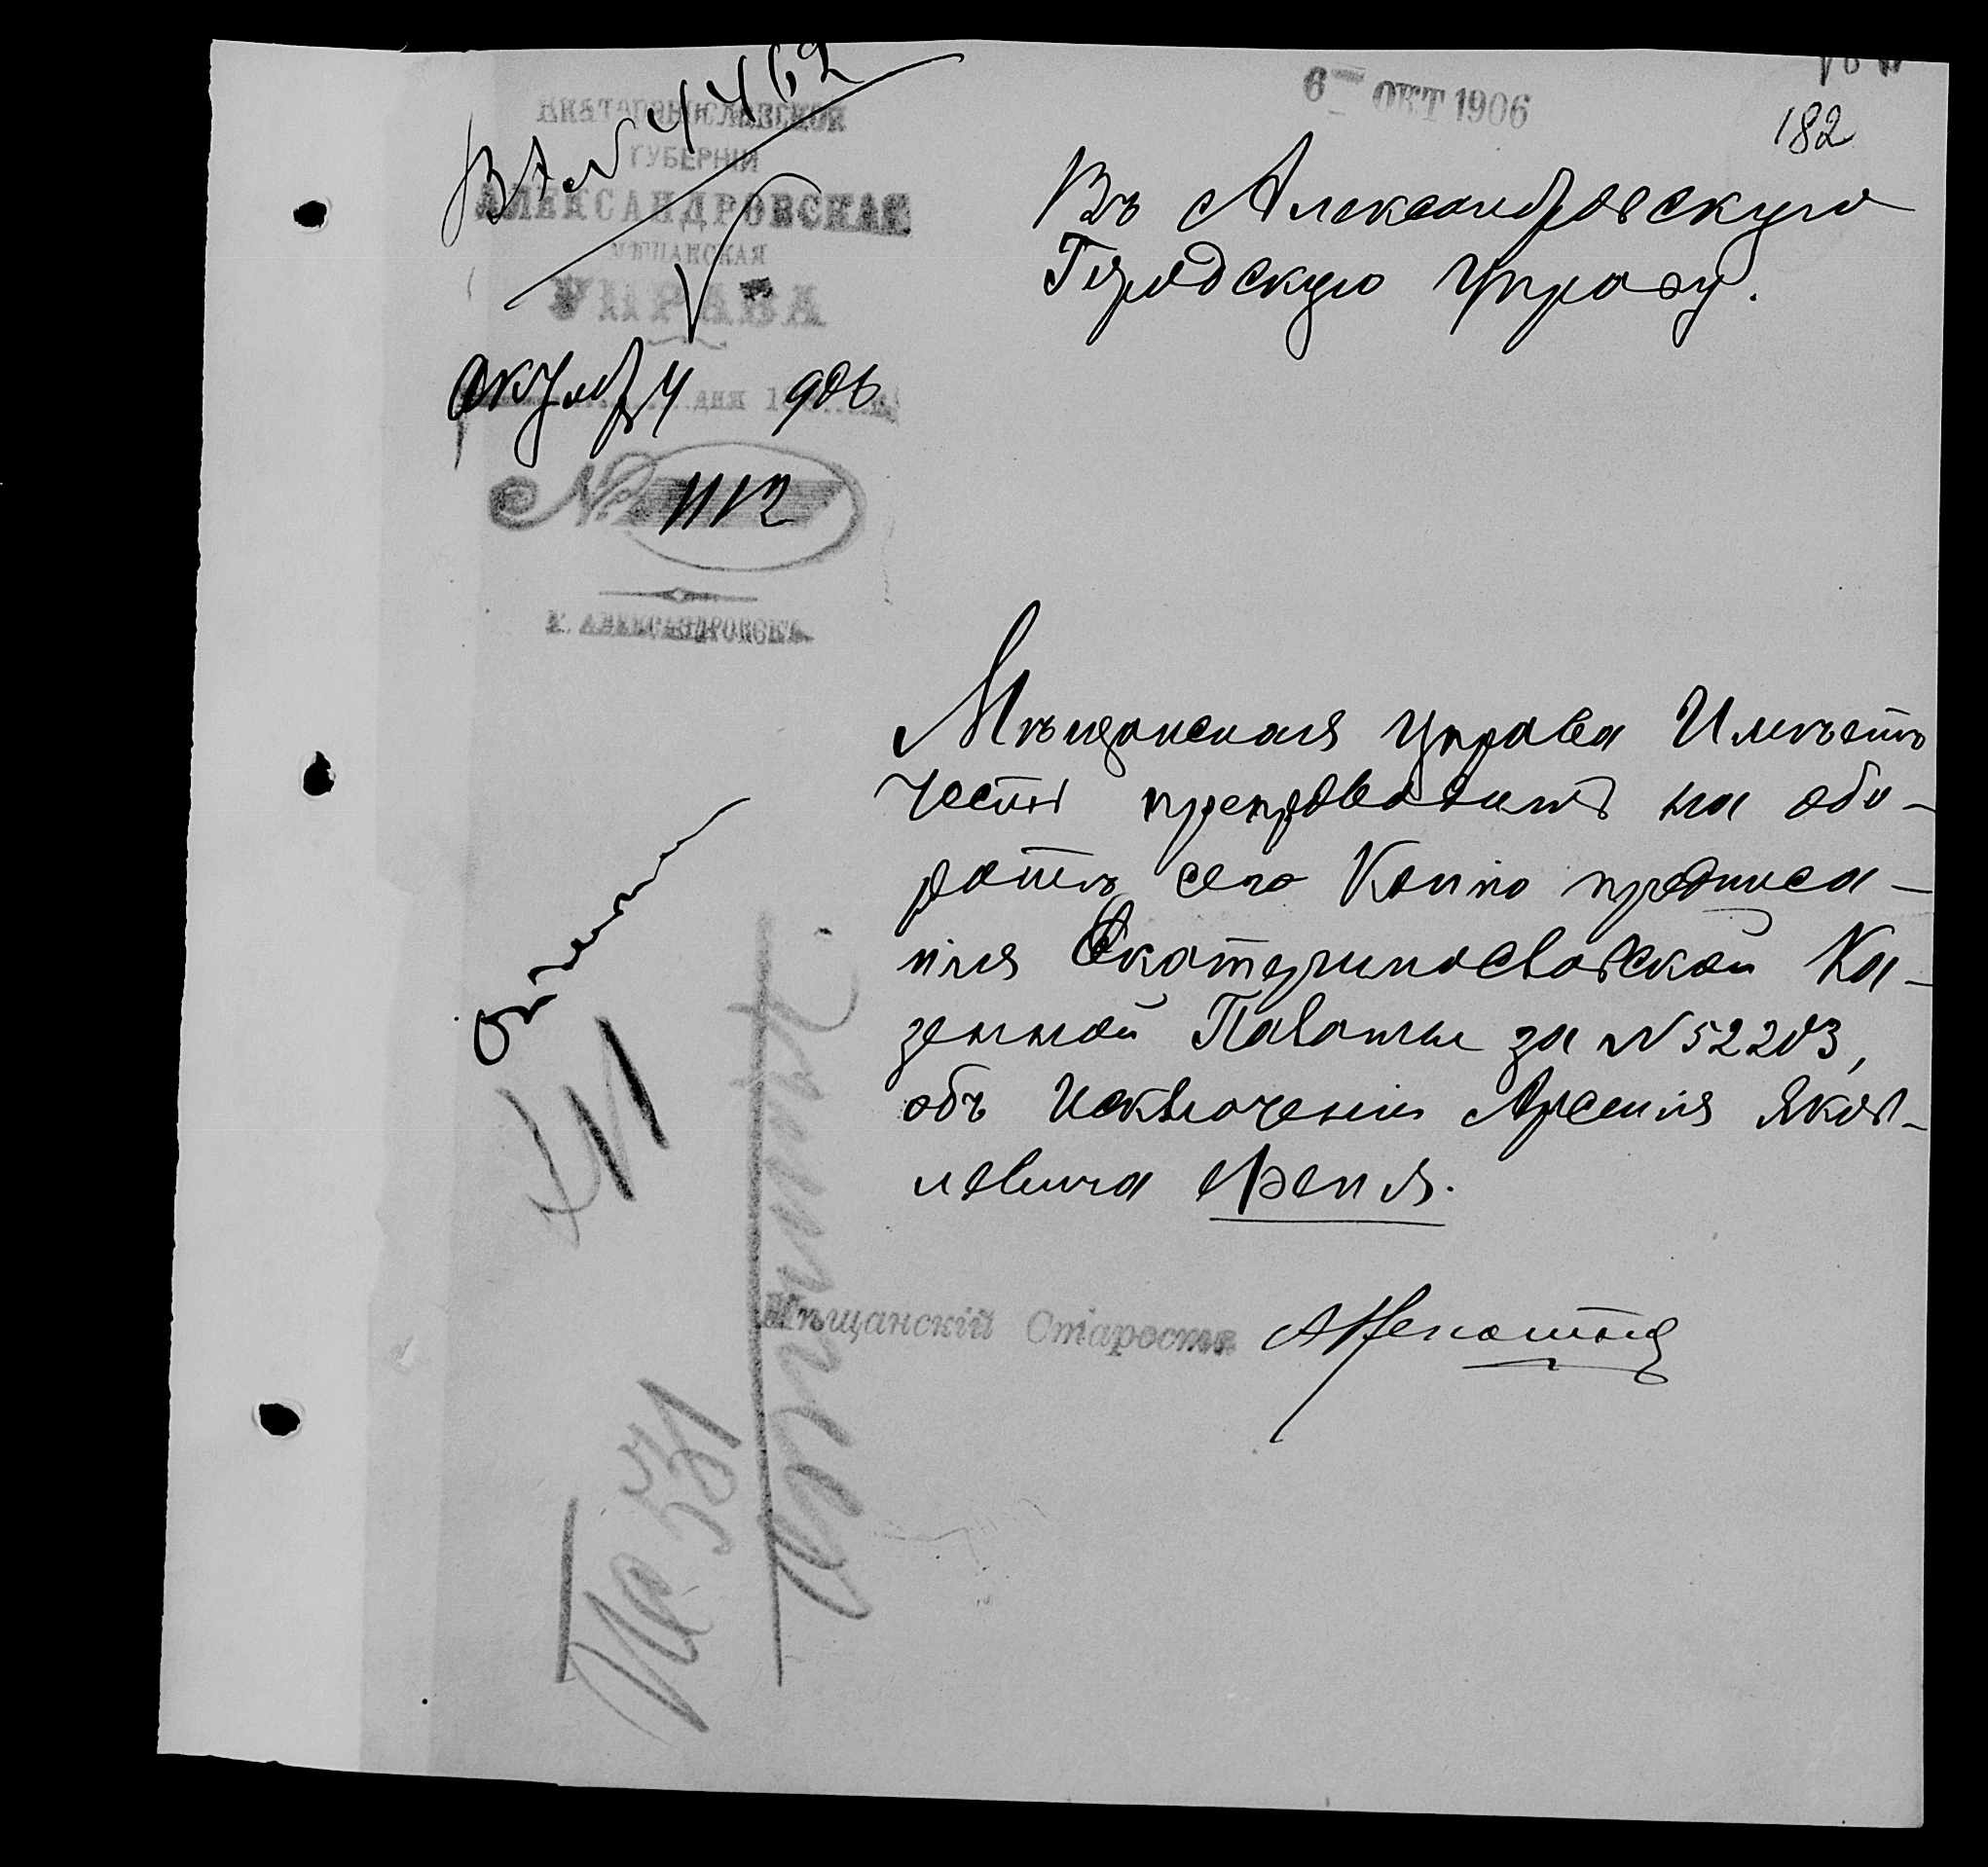 6 ОКТ 1906
182
4462
Екатеринославской
ГУБЕРНІИ
АЛЕКСАНДРОВСКАЯ
МѢЩАНСКАЯ
УПРАВА
Октября 4 дня 1906
№ 1112
Г. АЛЕКСАНДРОВСКЪ
Въ Александровскую
Городскую Управу.
Мѣщанская Управа Имѣетъ
честь препроводить на обо-
ротѣ сего Копію предписа-
нія Екатеринославской Ка-
зенной Палаты за № 52203,
объ Исключеніи Арсенія Яков-
левича
Мѣщанскій Староста